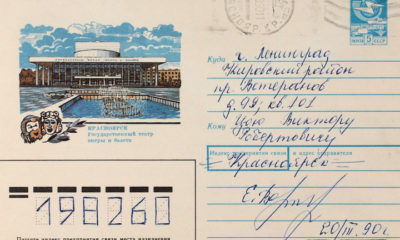 ПОЧТА 5к СССР
Куда г. Ленинград
Кировский район
пр. Ветеранов
д. 99, кв. 101
Кому Цою Виктору
Робертовичу
Индекс предприятия связи и адрес отправителя
Красноярск
20/III. 90 г.
КРАСНОЯРСК
Государственный театр
оперы и балета
198260
Пишите индекс предприятия связи места назначения